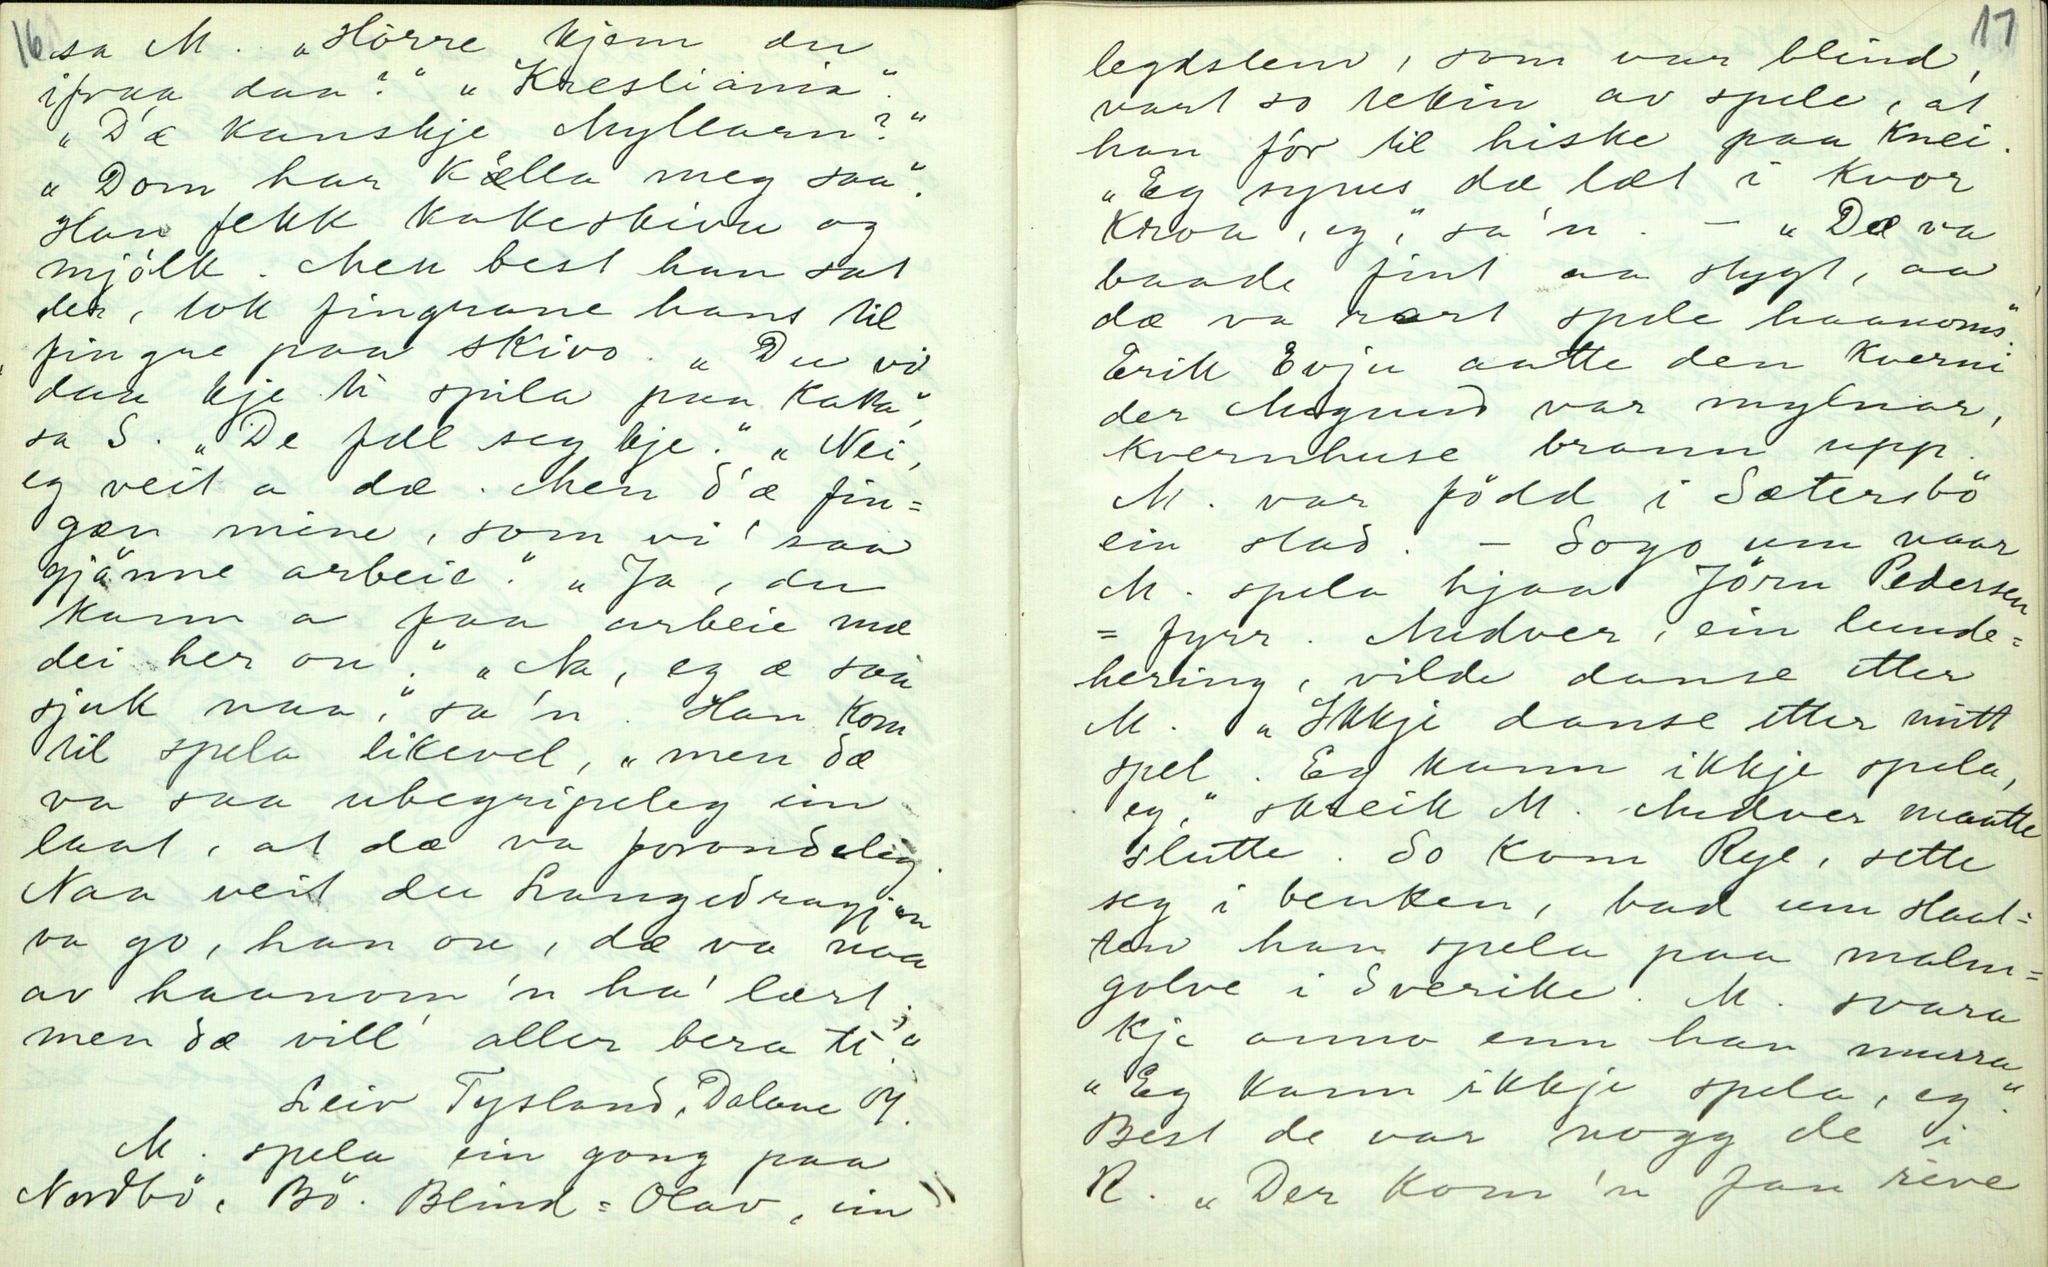 16
sa M. „Hörre kjem du
ifraa daa?“ „Krestiania“.
„D'æ kanskje Myllarn?“
„Dom har kælla meg saa“.
Han fekk kakeskiva og
mjölk. Men best han sat
der, tok fingrane hans til
fingre paa skivo. „Du vi
daa kje ti spila paa kaka“,
sa S. „De fæl seg kje.“ „Nei,
eg veit a dæ. Men d'æ fin=
gæn mine, som vi' saa
gjänne arbeie.“ „Ja, du
kann a faa arbeie mæ
dei her ou.“ „Na, eg æ saa
sjuk naa,“ sa'n. Han kom
til spela likevel, „men dæ
va saa ubegripeleg ein
laat, at dæ va forondeleg.
Naa veit du Langedragjen
va go, han ou, dæ va noa
av haanom 'n ha' lært;
men dæ vill' aller bera ti.“
Leiv Tysland, Dalane
M. spela ein gong paa
Nordbö, Bö. Blind=Olav, ein
17
legdslem, som var blind,
vart so tekin av spele, at
han fór til hiske paa knei.
„Eg synes dæ læt i kvor
kroa, eg,“ sa'n. – „Dæ va
baade fint aa stygt, aa
dæ va rart spele haanoms“.
Erik Evju aatte den kverni
der Mogund var mylnar,
kvernhuse brann upp.
M. var född i Sætersbö
ein stad. – Sogo um naar
M. spela hjaa Jörn Pedersen
= fyrr. Midver, ein lunde=
hering, vilde danse etter
M. „Ikkje danse etter mitt
spel. Eg kann ikkje spela,
eg,“ skreik M. Midver maatte
slutte. So kom Rye, sette
seg i benken, bad um slaat=
ten han spela paa malm=
golve i Sverike. M. svara
kje anna enn han murra
„Eg kann ikkje spela, eg.“
Best de var nogg de i
R. „Der kom 'n Jan reve